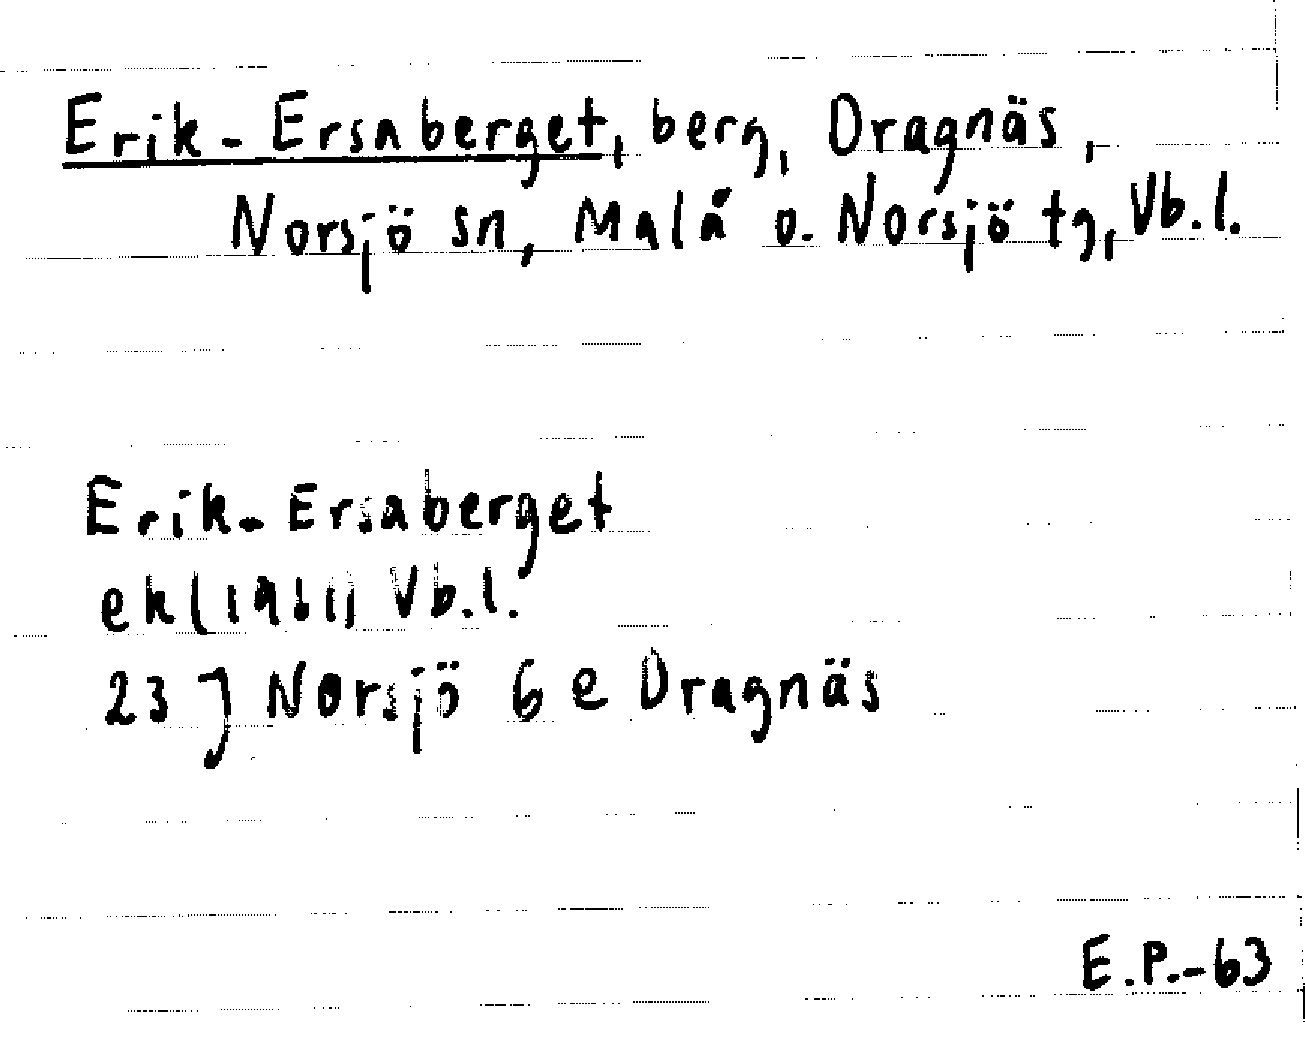 Erik-Ersaberget, berg, Dragnäs,
Norsjö sn, Malå o. Norsjö tg, Vb.l.
Erik-Ersaberget
ek(1961) Vb.l.
23 J Norsjö 6 e Dragnäs
E.P.-63